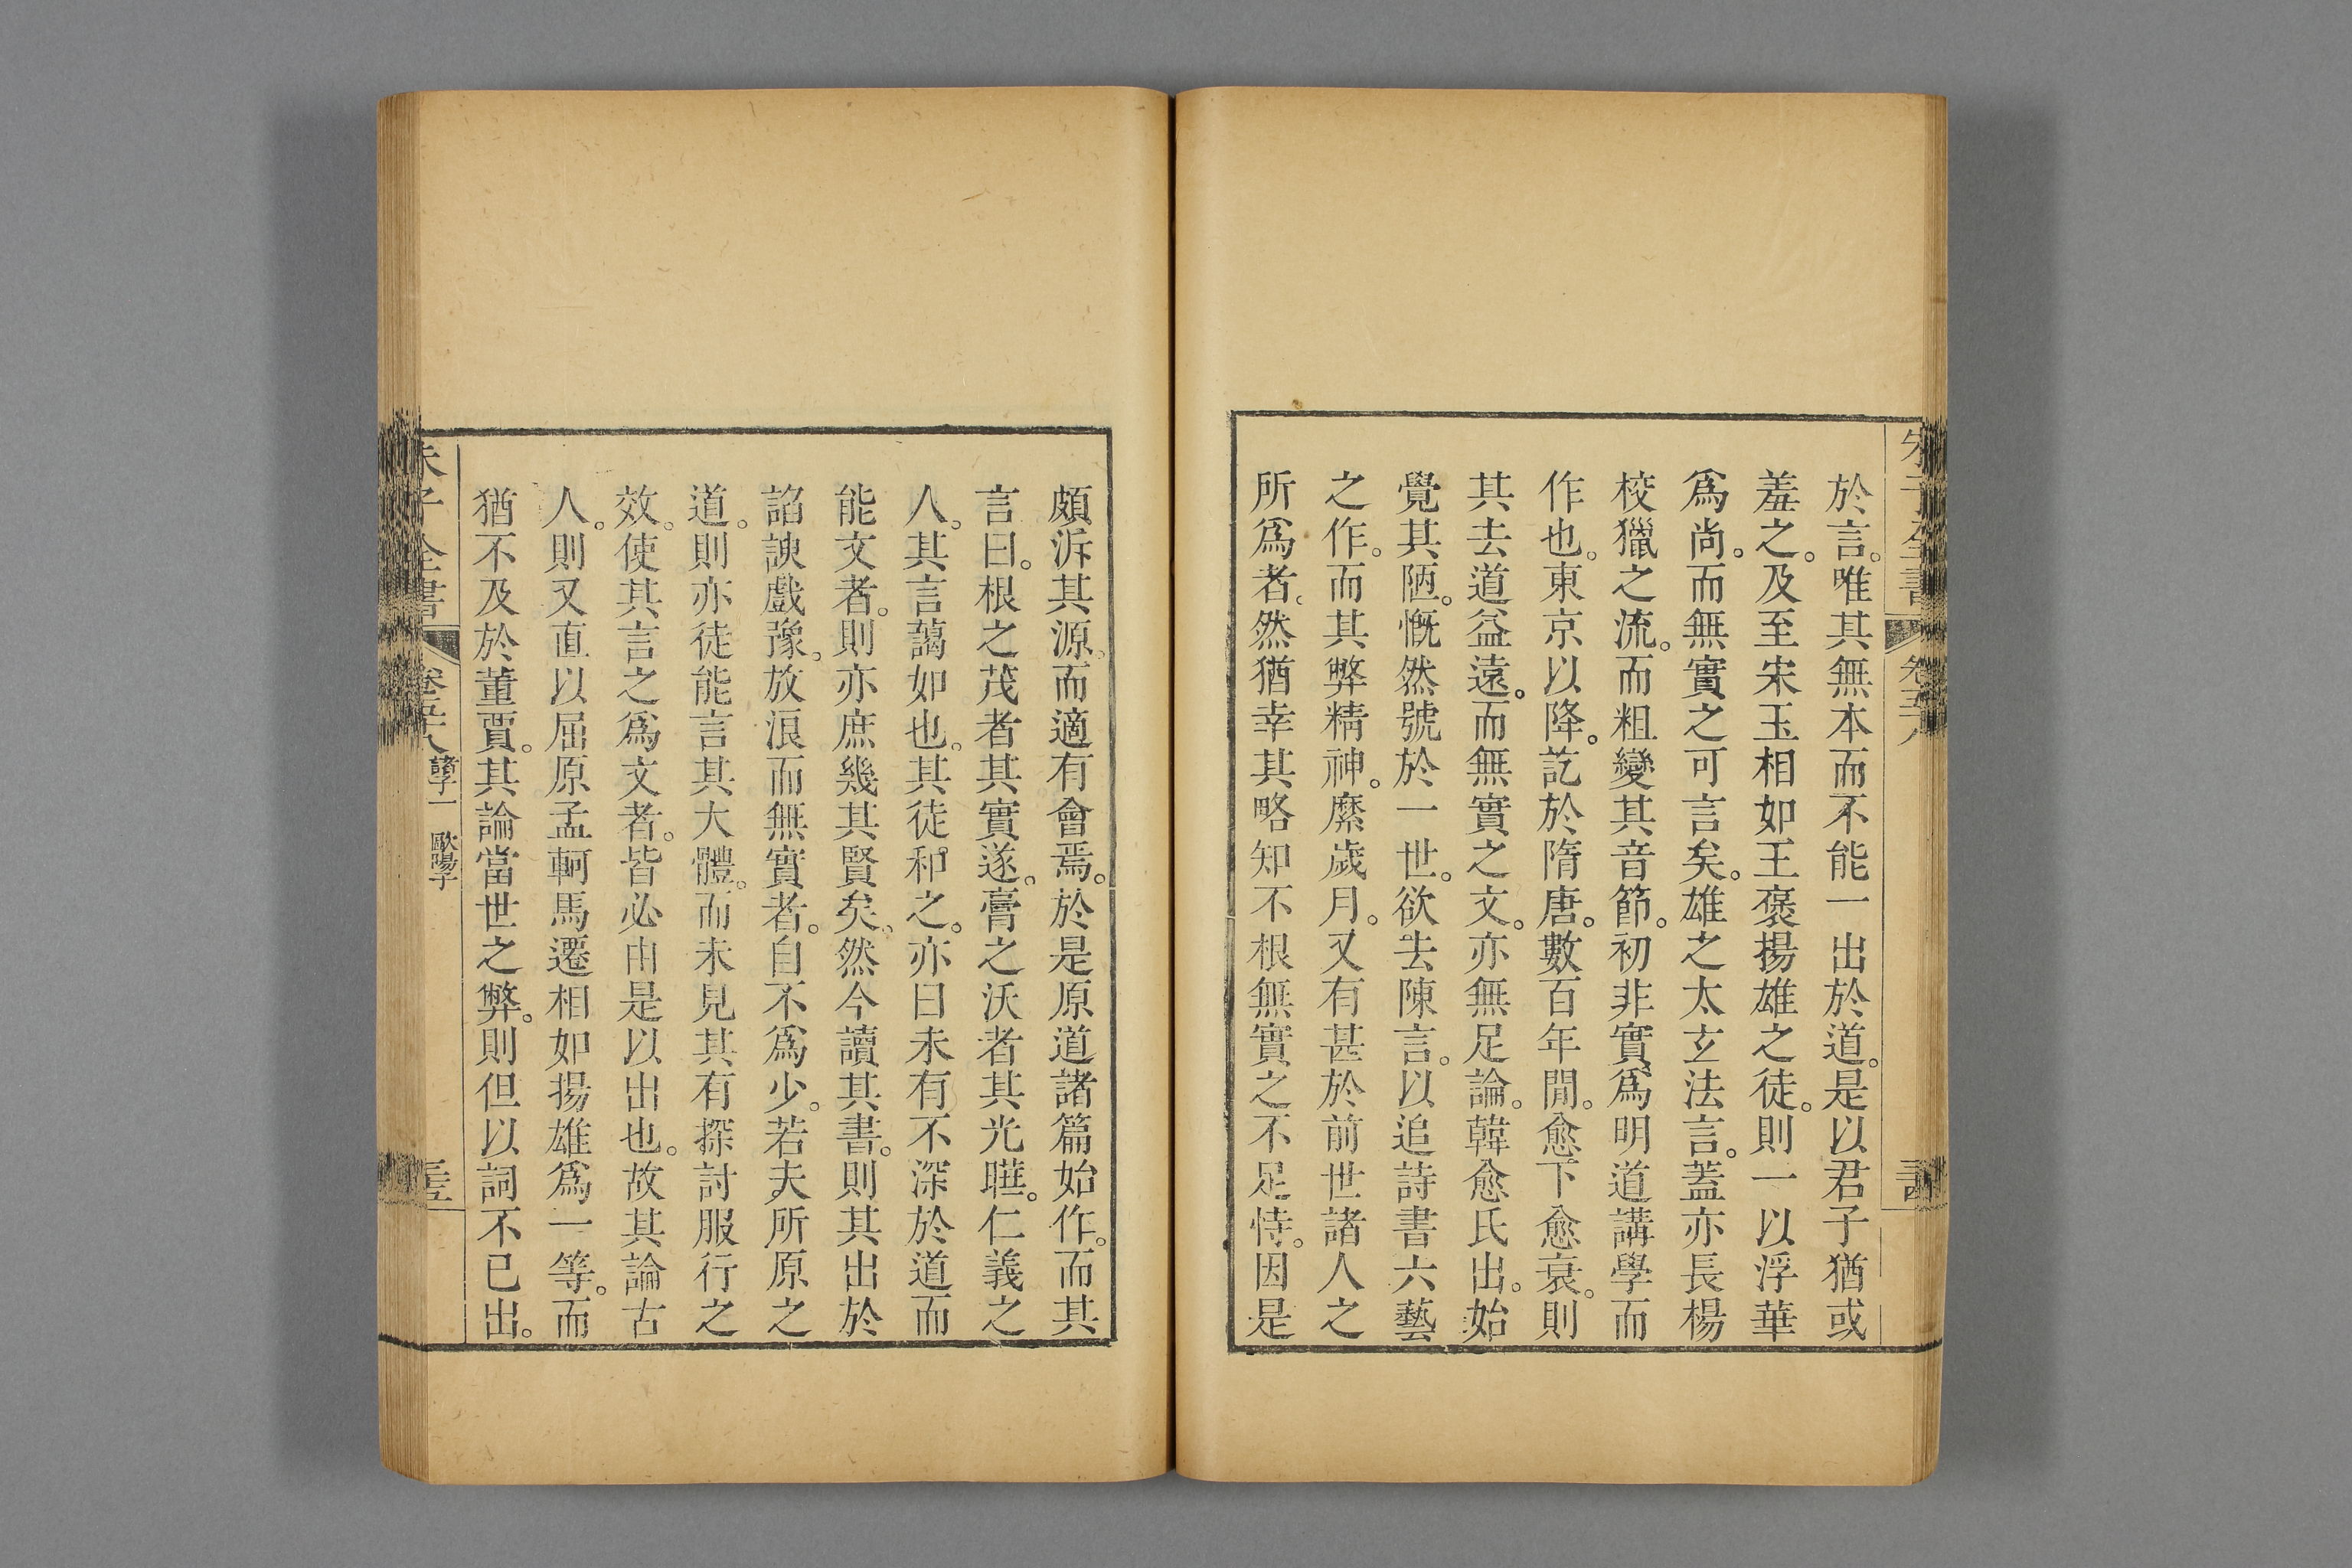 於言。唯其無本而不能一出於道。是以君子猶或
羞之。及至宋玉相如王褒揚雄之徒。則一以浮華
爲尚。而無實之可言矣。雄之太玄法言。蓋亦長楊
校獵之流。而粗變其音節。初非實爲明道講學而
作也。東京以降。訖於隋唐。數百年閒。愈下愈衰。則
其去道益遠。而無實之文。亦無足論。韓愈氏出。始
覺其陋。慨然號於一世。欲去陳言。以追詩書六藝
之作。而其弊精神。縻歲月。又有甚於前世諸人之
所爲者。然猶幸其略知不根無實之不足恃。因是
頗泝其源。而適有會焉。於是原道諸篇始作。而其
言曰。根之茂者其實遂。膏之沃者其光曄。仁義之
人。其言藹如也。其徒和之。亦曰未有不深於道而
能文者。則亦庶幾其賢矣。然今讀其書。則其出於
諂諛戲豫。放浪而無實者。自不爲少。若夫所原之
道。則亦徒能言其大體。而未見其有探討服行之
效。使其言之爲文者。皆必由是以出也。故其論古
人。則又直以屈原孟軻馬遷相如揚雄爲一等。而
猶不及於董賈。其論當世之弊。則但以詞不已出。
朱子全書
卷五十八
歐陽子